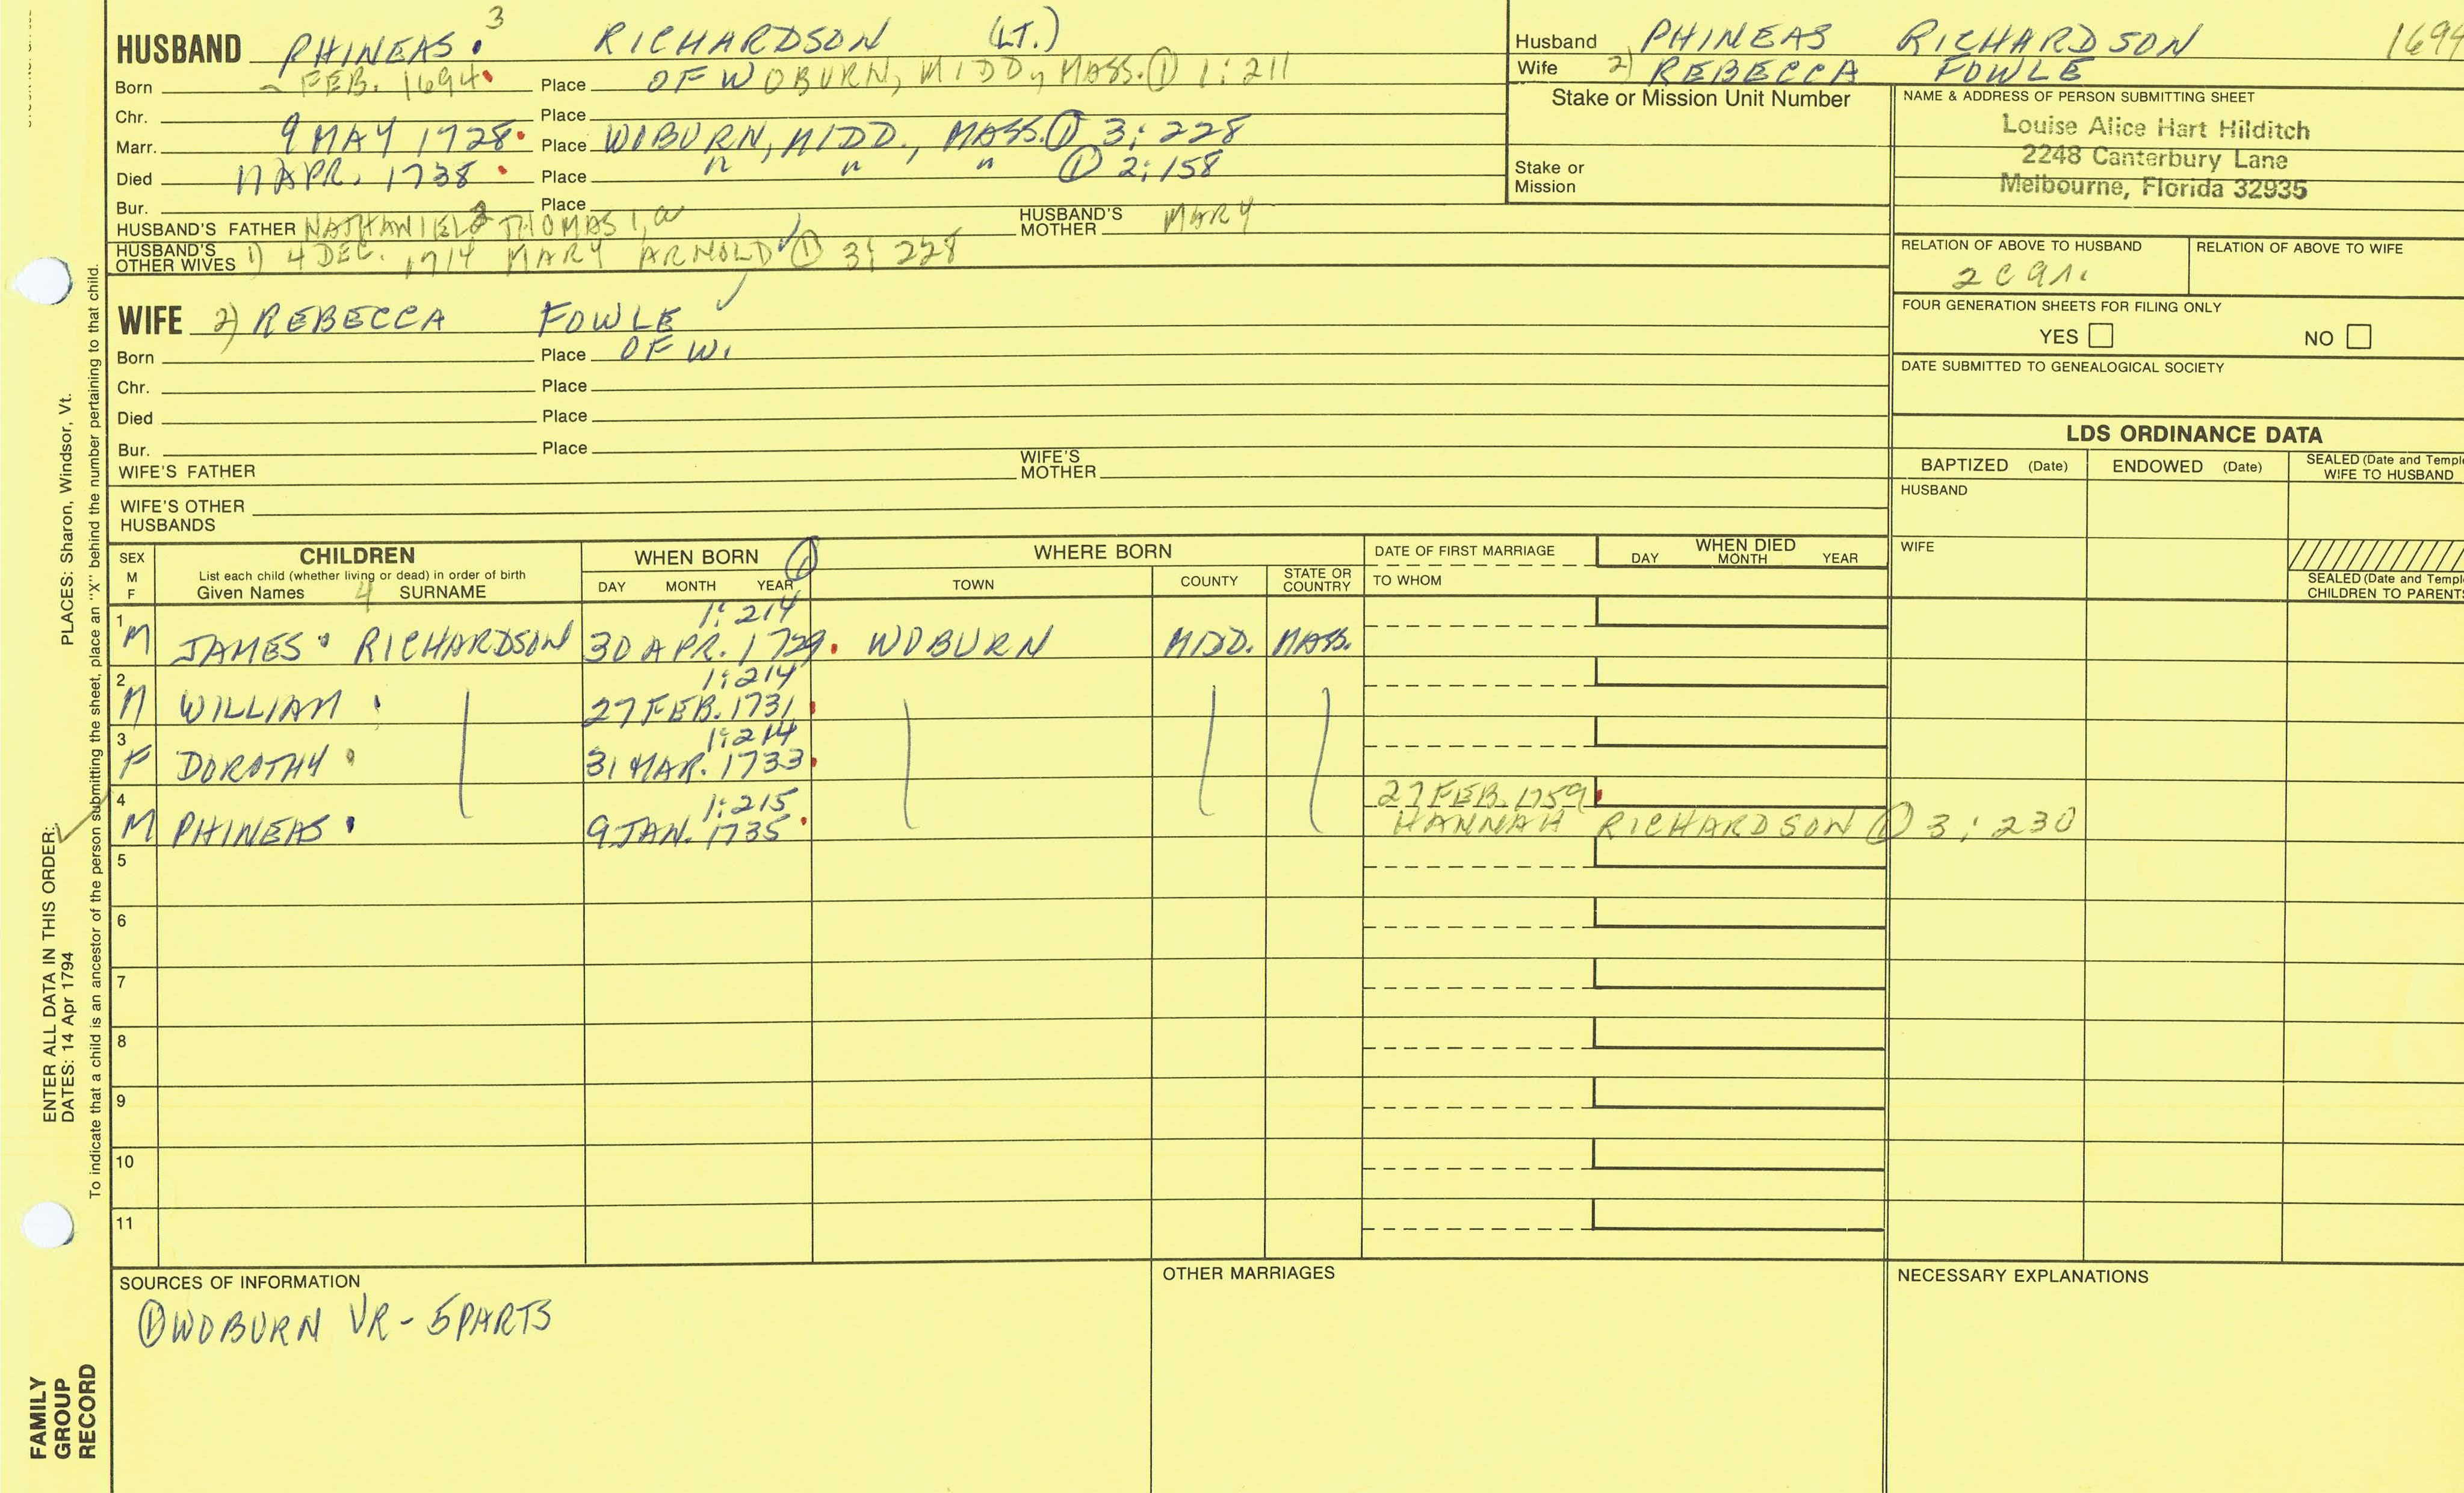 HUSBAND PHINEAS 3 RICHARDSON (LT.)
Born ~ FEB. 1694 Place OF WOBURN, MIDD, MASS. ① 1:211
Chr. Place
Marr. 9 MAY 1728 Place WOBURN, MIDD., MASS. ① 3:228
Died APR. 1738 Place " " " ① 2:158
Bur. Place
HUSBAND'S FATHER NATHANIEL 2 THOMAS 1, HUSBAND'S MOTHER MARY
HUSBAND'S OTHER WIVES 1) 4 DEC. 1714 MARY ARNOLD ① 3:228
WIFE 2) REBECCA FOWLE
Born Place OF W.
Chr. Place
Died Place
Bur. Place
WIFE'S FATHER WIFE'S MOTHER
WIFE'S OTHER HUSBANDS
Husband PHINEAS RICHARDSON
Wife 2) REBECCA FOWLE
Stake or Mission Unit Number
Stake or Mission
NAME & ADDRESS OF PERSON SUBMITTING SHEET
Louise Alice Hart Hilditch
2248 Canterbury Lane
Melbourne, Florida 32935
RELATION OF ABOVE TO HUSBAND RELATION OF ABOVE TO WIFE
FOUR GENERATION SHEETS FOR FILING ONLY
YES NO
DATE SUBMITTED TO GENEALOGICAL SOCIETY
LDS ORDINANCE DATA
BAPTIZED (Date) ENDOWED (Date) SEALED (Date and Temple
WIFE TO HUSBAND
HUSBAND
WIFE
SEALED (Date and Temple
CHILDREN TO PARENTS
SEX M F CHILDREN WHEN BORN ① WHERE BORN DATE OF FIRST MARRIAGE WHEN DIED
List each child (whether living or dead) in order of birth
Given Names 4 SURNAME DAY MONTH YEAR TOWN COUNTY STATE OR COUNTRY TO WHOM DAY MONTH YEAR
1:214
1 M JAMES RICHARDSON 30 APR. 1729 WOBURN MIDD. MASS.
1:214
2 M WILLIAM 27 FEB. 1731
1:214
3 F DOROTHY 31 MAR. 1733
1:215 27 FEB. 1759
4 M PHINEAS 9 JAN. 1735 HANNAH RICHARDSON ① 3:230
5
6
7
8
9
10
11
SOURCES OF INFORMATION
① WOBURN VR - 5 PARTS
OTHER MARRIAGES
NECESSARY EXPLANATIONS
PLACES: Sharon, Windsor, Vt.
ENTER ALL DATA IN THIS ORDER:
DATES: 14 Apr 1794
To indicate that a child is an ancestor of the person submitting the sheet, place an "X" behind the number pertaining to that child.
FAMILY
GROUP
RECORD